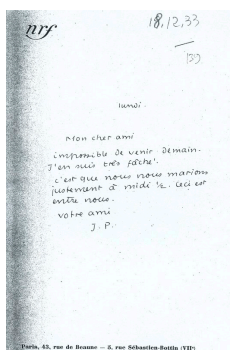 nrf
18.12.33
lundi.
Mon cher ami
impossible de venir demain.
J'en suis très fâché.
c'est que nous nous marions
justement à midi ½. Ceci est
entre nous.
votre ami
J. P.
Paris, 43, rue de Beaune — 5, rue Sébastien-Bottin (VIIe)